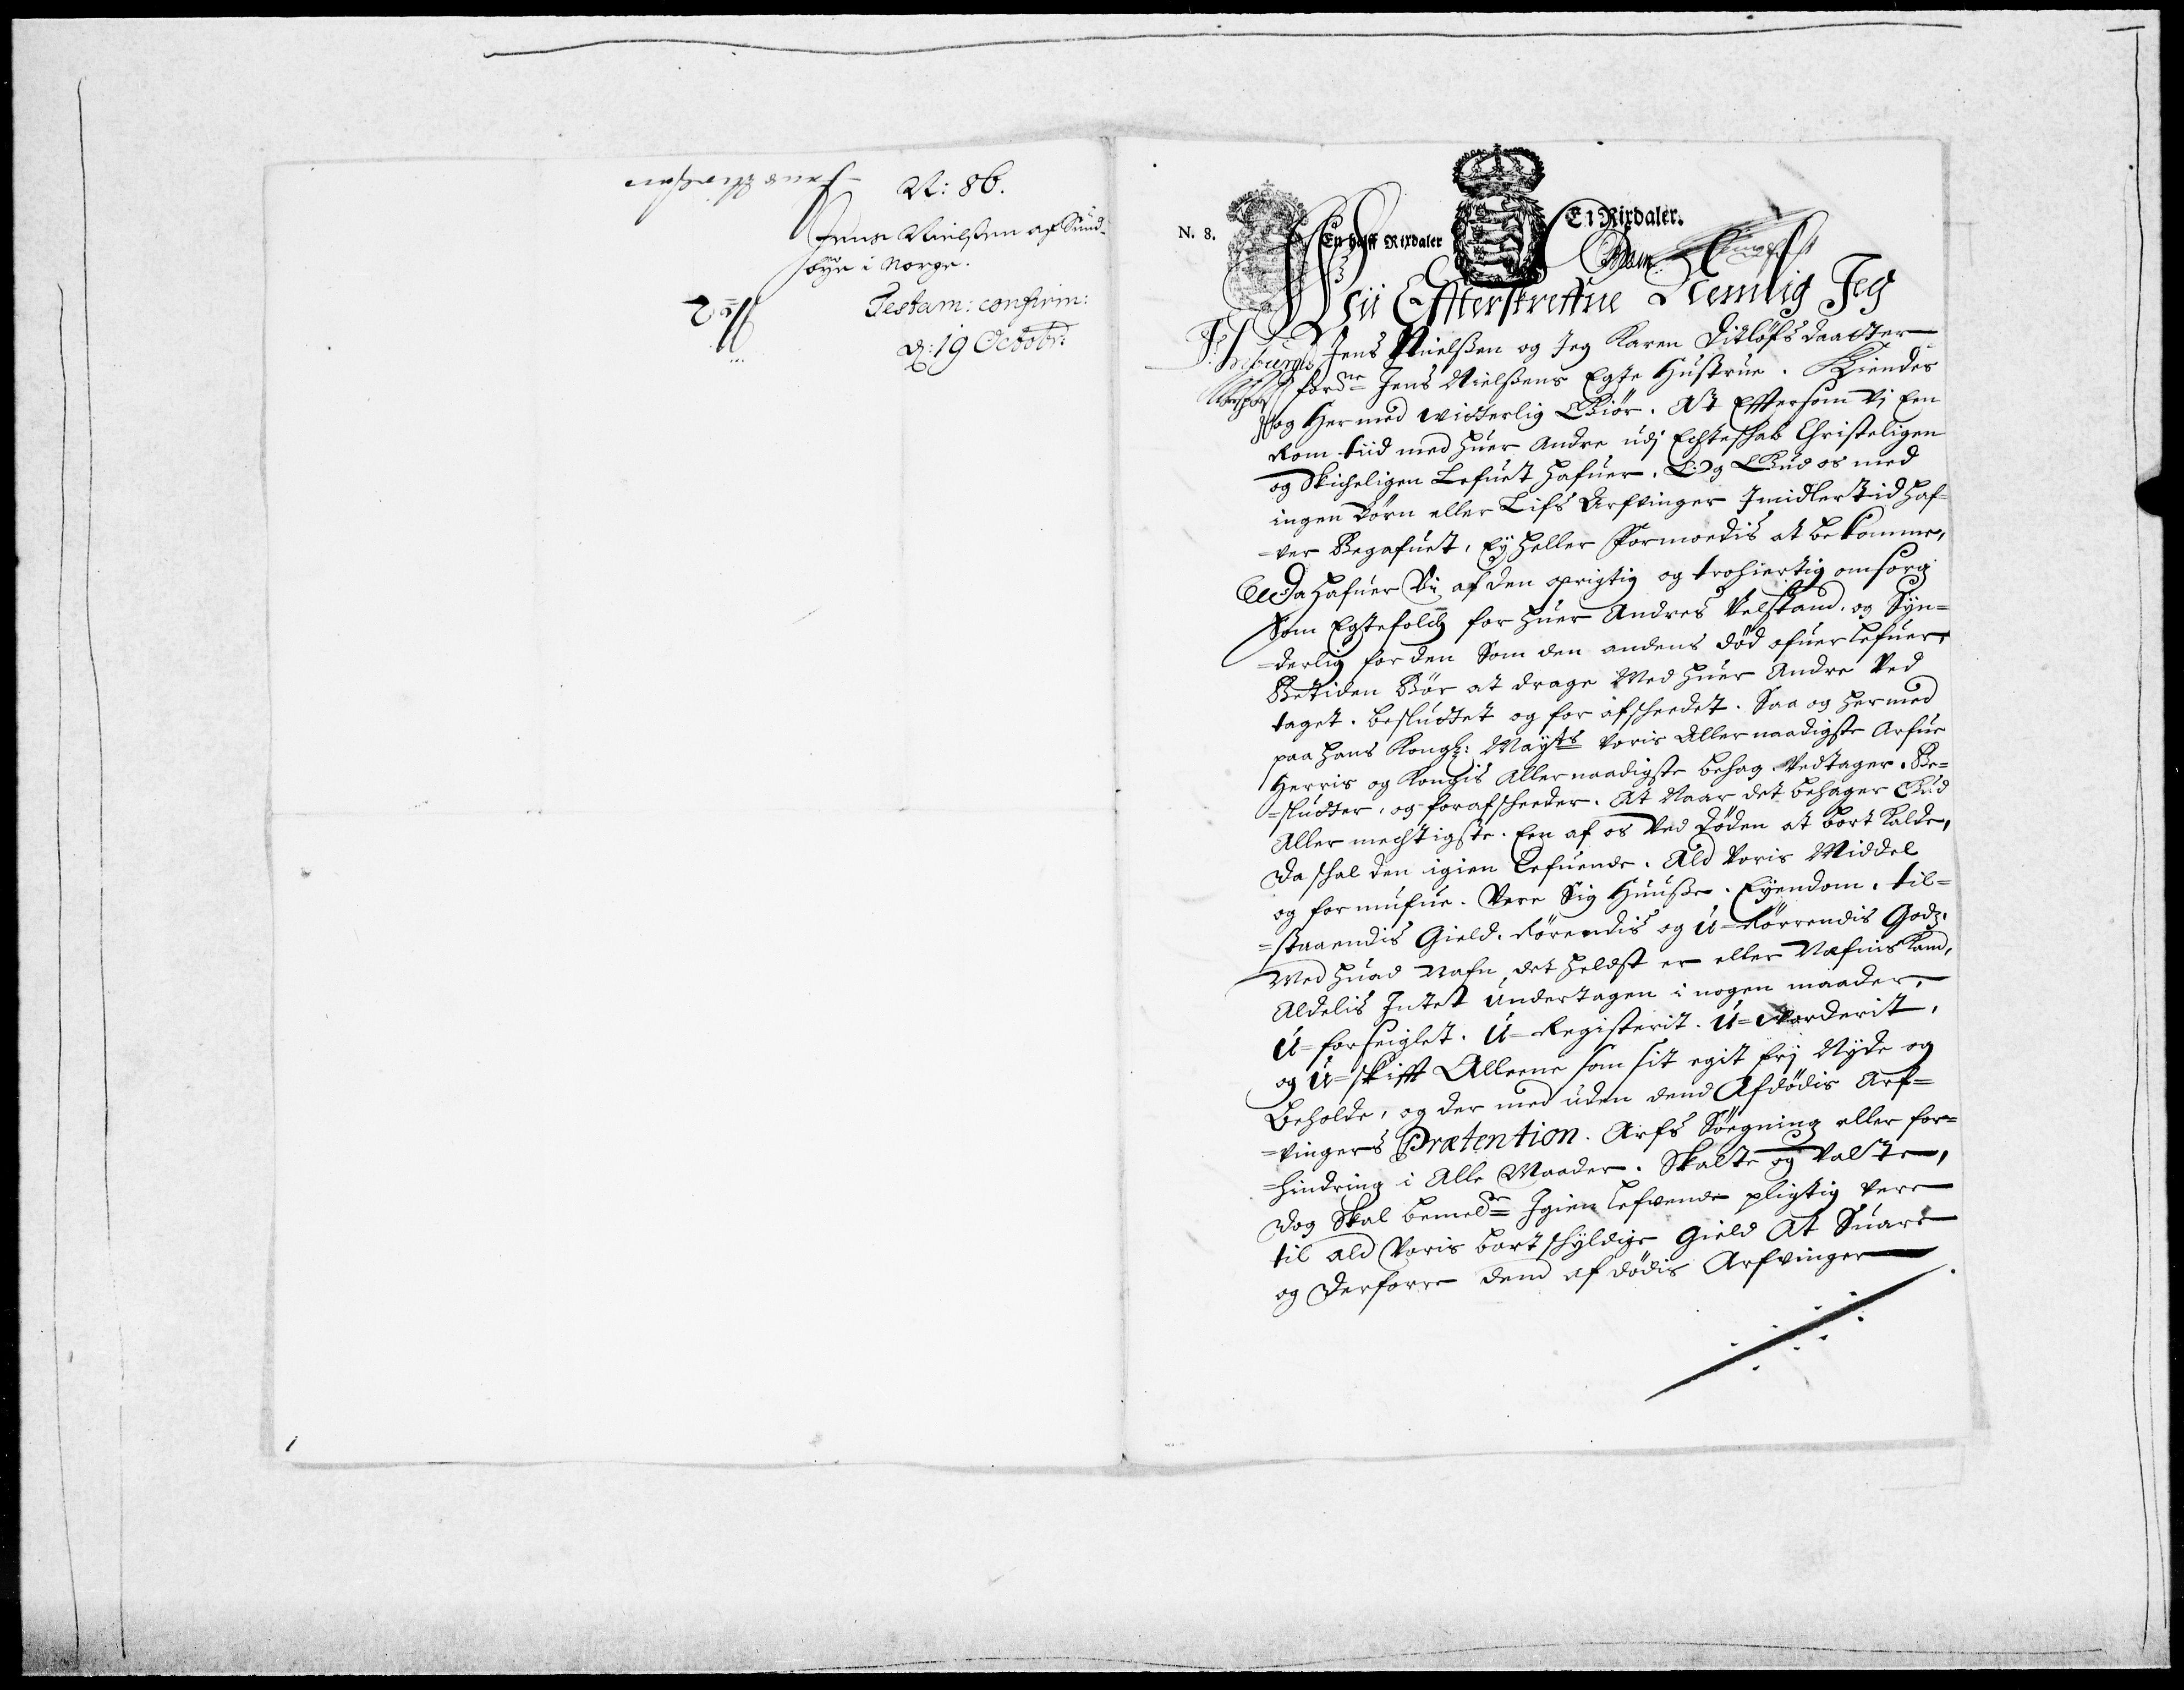 N: 86.
Jens Nielssen af Sund-
øye i Norge.
Testam: confirm:
d: 19 Octobr:
N. 8.
En halff Rixdaler
E1 Rixdaler.
Wii Effterskreffne Nemlig Jeg
Jens Nielssen og Jeg Karen Ditløfs daatter
fordne Jens Nielssens Egte Hustrue. Kiendes
og Hermed witterlig Giør. At Effter som Vj Een
Rom tiid med huer Andre udj Echteskab Christeligen
og Skicheligen Lefuet hafuer. Og Gud os med
ingen børn eller Lifs Arfvinger Imidlertid haf-
=ver Begafuet, Ey heller Formoedis at bekomme,
Da hafuer Vii af den oprigtig og trohiertig omsorg
Som Egtefolch for huer Andres Velstand. og Syn=
=derlig for den Som den andens død ofuer lefuer,
Betiden Bør at drage Med huer Andre Ved
taget. besluttet og for afskeedet. Saa og hermed
paa Hans Kongl: Mayts voris Aller naadigste Arfue
Herris og Kongis Aller naadigste behag. Vedtager. Be=
=slutter, og forafskeeder. At Naar det behager Gud
Aller mechtigste. Een af os Ved døden at bort kalde,
da skal den igien Lefuende. Ald Voris Middel
og formufue. Vere Sig Huusse. Eyendom. til=
=staaendis Gield. Rørendis og U=Rørrendis Godz.
Med huad Nafn det heldst er eller Nefnis kand,
Aldelis Intet undertagen i nogen maader,
U=forseiglet. U=Registerit. U=Vorderit,
og U=skifft Alleene som sit egit frj Nyde og
Beholde, og der med uden dend Afdødis Arf=
=vingers Prætention. Arfs Søegning eller for=
=hindring i Alle Maader. Skalte og Valte,
dog Skal bemelde Igien Lefvende pligtig vere
til ald Voris bortskyldige Gield At Suare
og derforre dend afdødis Arfvinger